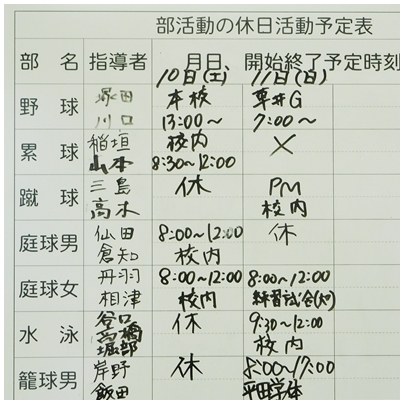 部活動の休日活動予定表
部名 指導者 月日、開始終了予定時刻
10日(土) 11日(日)
野球 塚田 本校 専井G
川口 13:00〜 7:00〜
累球 稲垣 校内 ×
山本 8:30〜12:00
蹴球 三島 休 PM
高木 校内
庭球男 仙田 8:00〜12:00 休
倉知 校内
庭球女 丹羽 8:00〜12:00 8:00〜12:00
相津 校内 練習試合
水泳 谷口 休 9:30〜12:00
高橋 校内
堀部
籠球男 岸野 休 8:00〜17:00
飯田 平田学体